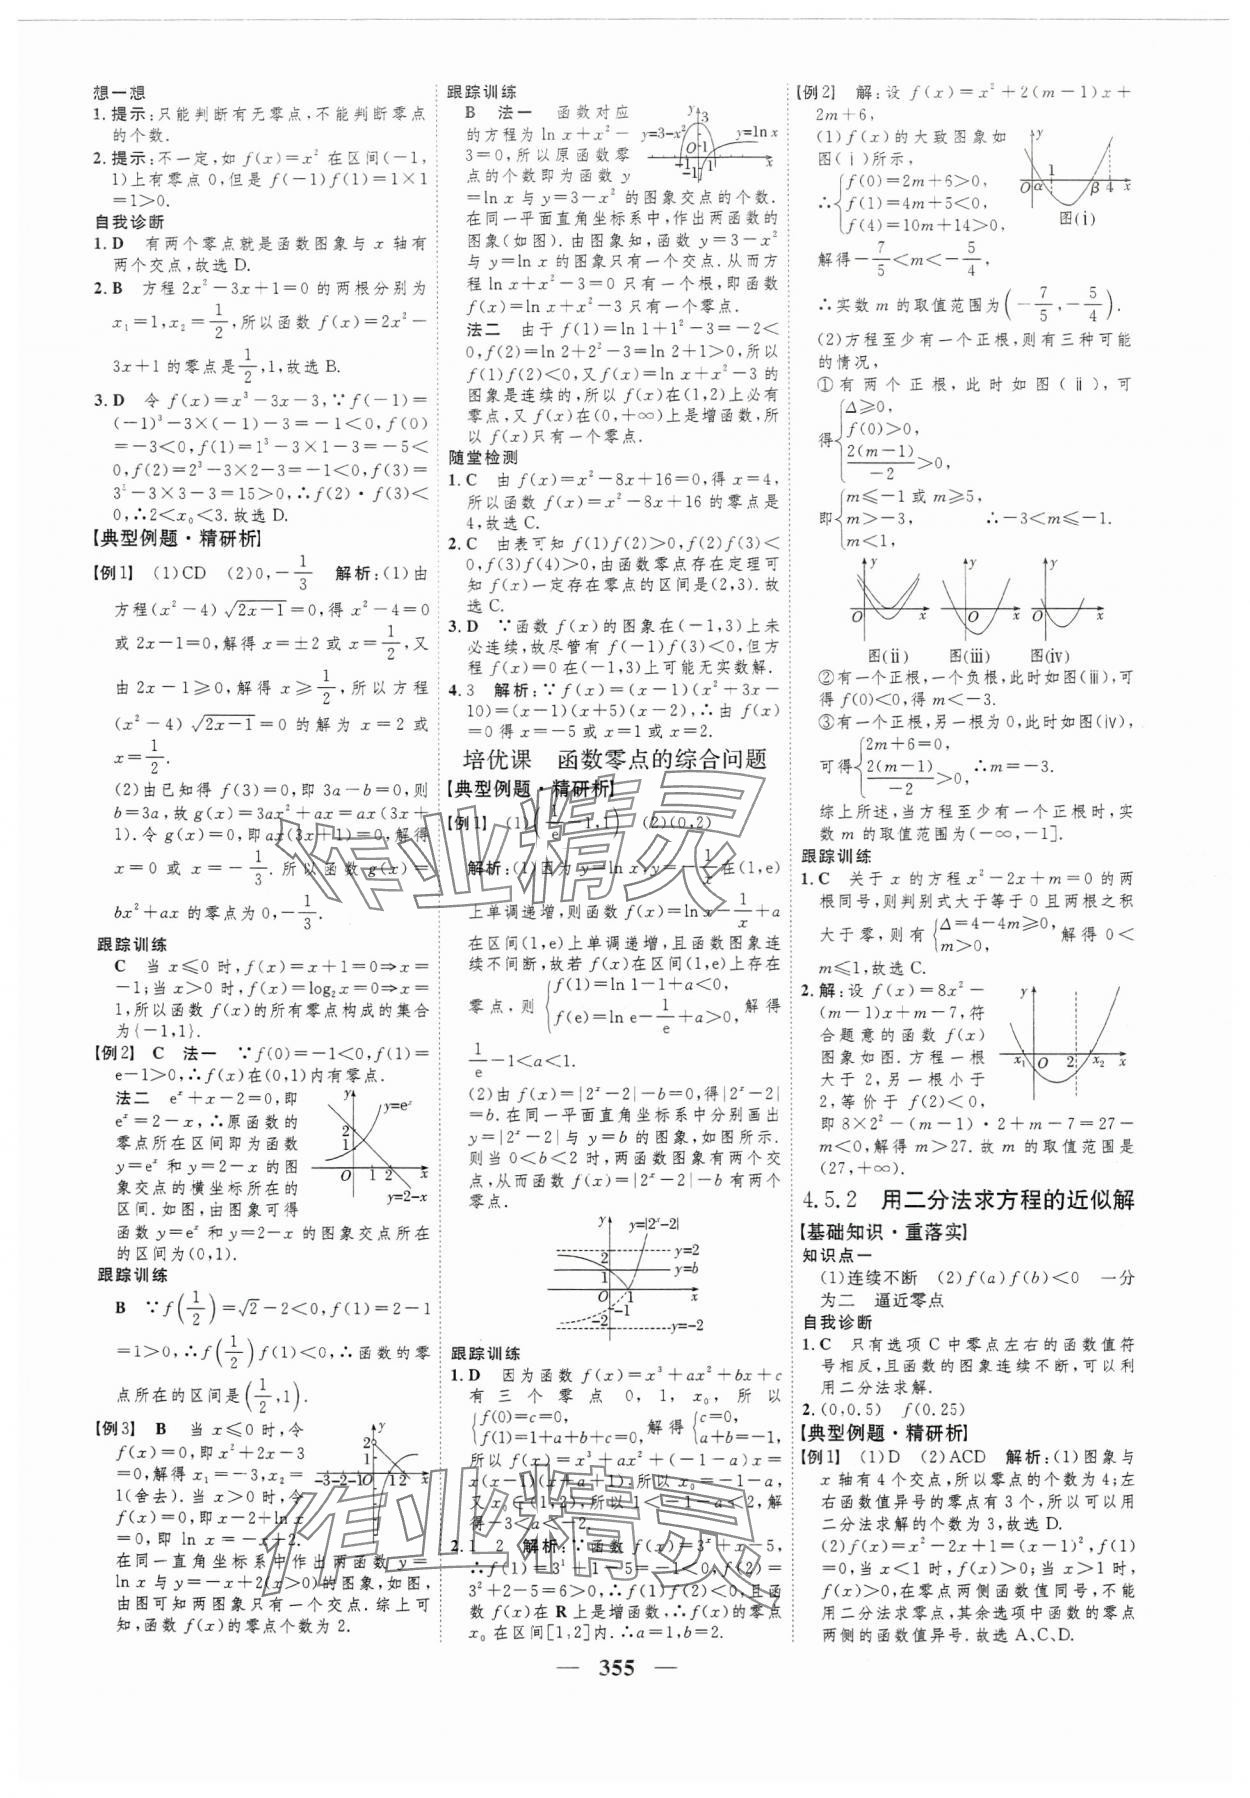 想一想
1.提示:只能判断有无零点,不能判断零点
的个数.
2.提示:不一定,如 f(x)=x² 在区间(-1,
1)上有零点 0,但是 f(-1)f(1)=1×1
=1>0.
自我诊断
1.D 有两个零点就是函数图象与 x 轴有
两个交点,故选 D.
2.B 方程 2x²-3x+1=0 的两根分别为
x₁=1,x₂=1/2,所以函数 f(x)=2x²-
3x+1 的零点是1/2,1,故选 B.
3.D 令 f(x)=x³-3x-3,∵f(-1)=
(-1)³-3×(-1)-3=-1<0,f(0)
=-3<0,f(1)=1³-3×1-3=-5<
0,f(2)=2³-3×2-3=-1<0,f(3)=
3³-3×3-3=15>0,∴f(2)·f(3)<
0,∴2<x₀<3.故选 D.
【典型例题·精研析】
【例1】 (1)CD (2)0,-1/3 解析:(1)由
方程(x²-4)√(2x-1)=0,得 x²-4=0
或 2x-1=0,解得 x=±2 或 x=1/2,又
由 2x-1≥0,解得 x≥1/2,所以方程
(x²-4)√(2x-1)=0 的解为 x=2 或
x=1/2.
(2)由已知得 f(3)=0,即 3a-b=0,则
b=3a,故 g(x)=3ax²+ax=ax(3x+
1).令 g(x)=0,即 ax(3x+1)=0,解得
x=0 或 x=-1/3.所以函数 g(x)=
bx²+ax 的零点为 0,-1/3.
跟踪训练
C 当 x≤0 时,f(x)=x+1=0⇒x=
-1;当 x>0 时,f(x)=log₂x=0⇒x=
1,所以函数 f(x)的所有零点构成的集合
为{-1,1}.
【例2】 C 法一 ∵f(0)=-1<0,f(1)=
e-1>0,∴f(x)在(0,1)内有零点.
法二 eˣ+x-2=0,即
eˣ=2-x,∴原函数的
零点所在区间即为函数
y=eˣ 和 y=2-x 的图
象交点的横坐标所在的
区间.如图,由图象可得
函数 y=eˣ 和 y=2-x 的图象交点所在
的区间为(0,1).
y
y=eˣ
2
1
O 1 2 x
y=2-x
跟踪训练
B ∵f(1/2)=√2-2<0,f(1)=2-1
=1>0,∴f(1/2)f(1)<0,∴函数的零
点所在的区间是(1/2,1).
【例3】 B 当 x≤0 时,令
f(x)=0,即 x²+2x-3
=0,解得 x₁=-3,x₂=
1(舍去).当 x>0 时,令
f(x)=0,即-2+ln x
=0,即 ln x=-x+2.
在同一直角坐标系中作出两函数 y=
ln x 与 y=-x+2(x>0)的图象,如图,
由图可知两图象只有一个交点.综上可
知,函数 f(x)的零点个数为 2.
y
2
-3-2-1O 1 2 x
跟踪训练
B 法一 函数对应
的方程为 ln x+x²-
3=0,所以原函数零
点的个数即为函数 y
=ln x 与 y=3-x² 的图象交点的个数.
在同一平面直角坐标系中,作出两函数的
图象(如图).由图象知,函数 y=3-x²
与 y=ln x 的图象只有一个交点.从而方
程 ln x+x²-3=0 只有一个根,即函数
f(x)=ln x+x²-3 只有一个零点.
y 3
y=3-x² y=ln x
O 1
-1 -1 x
法二 由于 f(1)=ln 1+1²-3=-2<
0,f(2)=ln 2+2²-3=ln 2+1>0,所以
f(1)f(2)<0,又 f(x)=ln x+x²-3 的
图象是连续的,所以 f(x)在(1,2)上必有
零点,又 f(x)在(0,+∞)上是增函数,所
以 f(x)只有一个零点.
随堂检测
1.C 由 f(x)=x²-8x+16=0,得 x=4,
所以函数 f(x)=x²-8x+16 的零点是
4,故选 C.
2.C 由表可知 f(1)f(2)>0,f(2)f(3)<
0,f(3)f(4)>0,由函数零点存在定理可
知 f(x)一定存在零点的区间是(2,3).故
选 C.
3.D ∵函数 f(x)的图象在(-1,3)上未
必连续,故尽管有 f(-1)f(3)<0,但方
程 f(x)=0 在(-1,3)上可能无实数解.
4.3 解析:∵f(x)=(x-1)(x²+3x-
10)=(x-1)(x+5)(x-2),∴由 f(x)
=0 得 x=-5 或 x=1 或 x=2.
培优课 函数零点的综合问题
【典型例题·精研析】
【例1】 (1)(1/e-1,1) (2)(0,2)
解析:(1)因为 y=ln x,y=-1/x在(1,e)
上单调递增,则函数 f(x)=ln x-1/x+a
在区间(1,e)上单调递增,且函数图象连
续不间断,故若 f(x)在区间(1,e)上存在
零点,则{f(1)=ln 1-1+a<0,
f(e)=ln e-1/e+a>0, 解得
1/e-1<a<1.
(2)由 f(x)=|2ˣ-2|-b=0,得|2ˣ-2|
=b.在同一平面直角坐标系中分别画出
y=|2ˣ-2|与 y=b 的图象,如图所示.
则当 0<b<2 时,两函数图象有两个交
点,从而函数 f(x)=|2ˣ-2|-b 有两个
零点.
y y=|2ˣ-2|
2 y=2
1 y=b
O 1 x
-1
-2 y=-2
跟踪训练
1.D 因为函数 f(x)=x³+ax²+bx+c
有三个零点 0,1,x₀,所以
{f(0)=c=0,
f(1)=1+a+b+c=0, 解得{c=0,
a+b=-1,
所以 f(x)=x³+ax²+(-1-a)x=
x(x-1)(x+a+1),所以 x₀=-1-a,
又 x₀∈(1,2),所以 1<-1-a<2,解
得-3<a<-2.
2.1 2 解析:∵函数 f(x)=3ˣ+x-5,
∴f(1)=3¹+1-5=-1<0,f(2)=
3²+2-5=6>0,∴f(1)f(2)<0,且函
数 f(x)在 R 上是增函数,∴f(x)的零点
x₀ 在区间[1,2]内.∴a=1,b=2.
【例2】 解:设 f(x)=x²+2(m-1)x+
2m+6,
(1)f(x)的大致图象如
图(ⅰ)所示,
∴{f(0)=2m+6>0,
f(1)=4m+5<0,
f(4)=10m+14>0,
解得-7/5<m<-5/4,
y
1
O α β 4 x
图(ⅰ)
∴实数 m 的取值范围为(-7/5,-5/4).
(2)方程至少有一个正根,则有三种可能
的情况,
①有两个正根,此时如图(ⅱ),可
得{Δ≥0,
f(0)>0,
2(m-1)/-2>0,
即{m≤-1 或 m≥5,
m>-3,
m<1, ∴-3<m≤-1.
y y y
O x O x O x
图(ⅱ) 图(ⅲ) 图(ⅳ)
②有一个正根,一个负根,此时如图(ⅲ),可
得 f(0)<0,得 m<-3.
③有一个正根,另一根为 0,此时如图(ⅳ),
可得{2m+6=0,
2(m-1)/-2>0, ∴m=-3.
综上所述,当方程至少有一个正根时,实
数 m 的取值范围为(-∞,-1].
跟踪训练
1.C 关于 x 的方程 x²-2x+m=0 的两
根同号,则判别式大于等于 0 且两根之积
大于零,则有{Δ=4-4m≥0,
m>0, 解得 0<
m≤1,故选 C.
2.解:设 f(x)=8x²-
(m-1)x+m-7,符
合题意的函数 f(x)的
图象如图.方程一根
大于 2,另一根小于
2,等价于 f(2)<0,
即 8×2²-(m-1)·2+m-7=27-
m<0,解得 m>27.故 m 的取值范围是
(27,+∞).
y
x₁ O 2 x₂ x
4.5.2 用二分法求方程的近似解
【基础知识·重落实】
知识点一
(1)连续不断 (2)f(a)f(b)<0 一分
为二 逼近零点
自我诊断
1.C 只有选项 C 中零点左右的函数值符
号相反,且函数的图象连续不断,可以利
用二分法求解.
2.(0,0.5) f(0.25)
【典型例题·精研析】
【例1】 (1)D (2)ACD 解析:(1)图象与
x 轴有 4 个交点,所以零点的个数为 4;左
右函数值异号的零点有 3 个,所以可以用
二分法求解的个数为 3,故选 D.
(2)f(x)=x²-2x+1=(x-1)²,f(1)
=0,当 x<1 时,f(x)>0;当 x>1 时,
f(x)>0,在零点两侧函数值同号,不能
用二分法求零点,其余选项中函数的零点
两侧的函数值异号.故选 A、C、D.
— 355 —
作业精灵
作业精灵